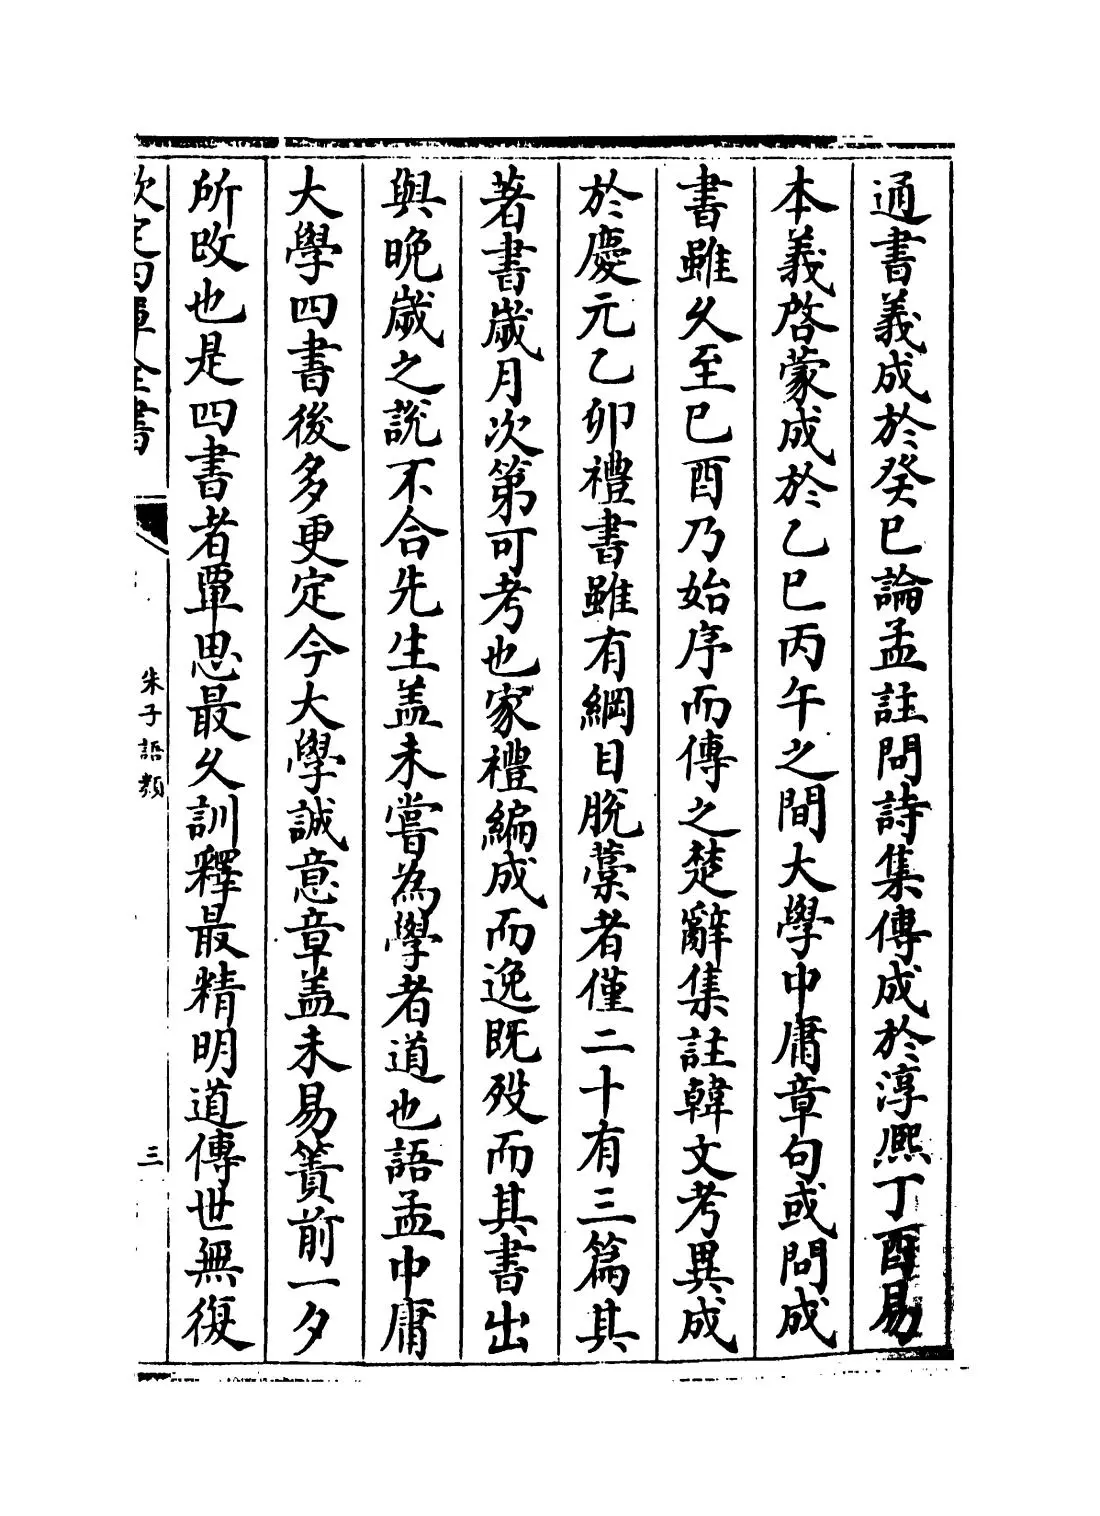 通書義成於癸巳論孟註問詩集傳成於淳熙丁酉易
本義啓蒙成於乙巳丙午之間大學中庸章句或問成
書雖久至已酉乃始序而傳之楚辭集註韓文考異成
於慶元乙卯禮書雖有綱目脱藁者僅二十有三篇其
著書歲月次第可考也家禮編成而逸既殁而其書出
與晚歲之說不合先生盖未嘗為學者道也語孟中庸
大學四書後多更定今大學誠意章盖未易簀前一夕
所改也是四書者覃思最久訓釋最精明道傳世無復
欽定四庫全書
朱子語類
三